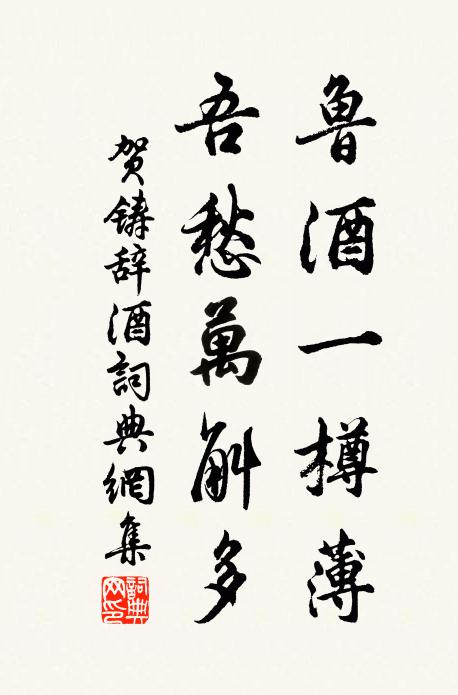 鲁酒一樽薄
吾愁萬斛多
贺铸辞酒詞典網集
詞典网印